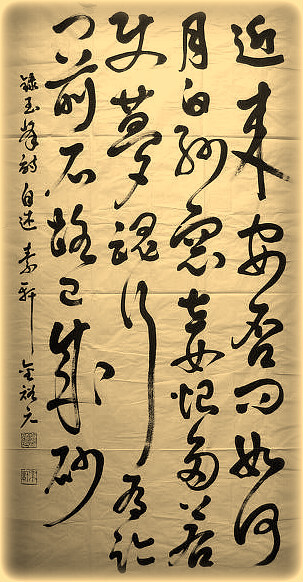 近来安否問如何
月白紗窓妾恨多若
使夢魂行有跡
門前石路已成砂
錄玉峯詩自述 素軒 金裕元